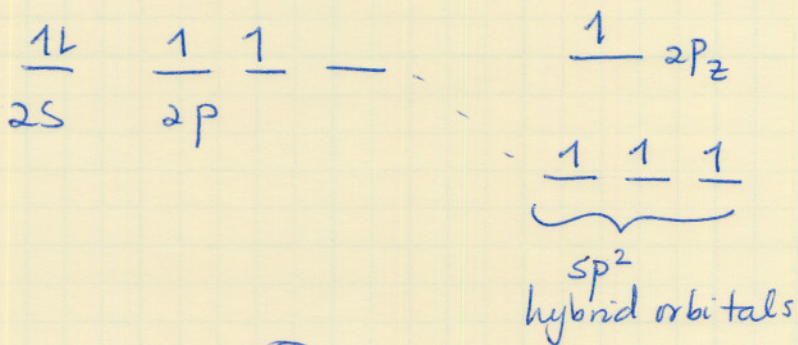 1L 1 1 1 2pz
2s 2p
1 1 1
sp²
hybrid orbitals